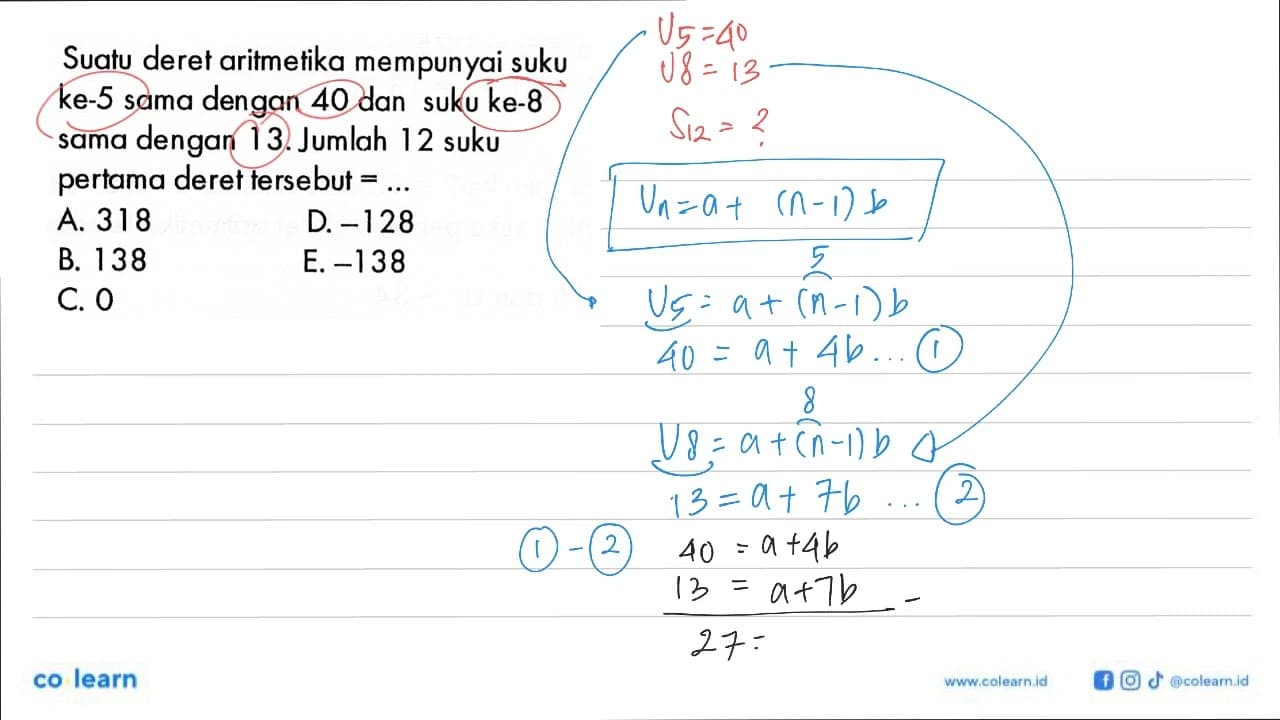 Suatu deret aritmetika mempunyai suku
ke-5 sama dengan 40 dan suku ke-8
sama dengan 13. Jumlah 12 suku
pertama deret tersebut = ...
A. 318 D. –128
B. 138 E. –138
C. 0
U5 = 40
U8 = 13
S12 = ?
Un = a + (n-1) b
5
U5 = a + (n-1) b
40 = a + 4b ... 1
8
U8 = a + (n-1) b
13 = a + 7b ... 2
1 - 2 40 = a + 4b
13 = a + 7b -
27 =
co learn
www.colearn.id @colearn.id